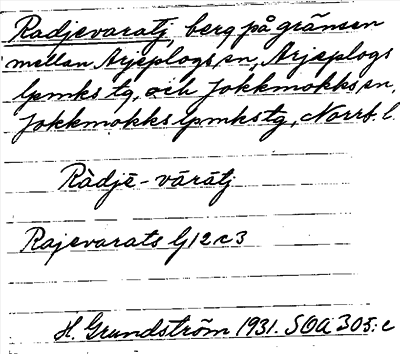 Radjevaratj, berg på gränsen
mellan Arjeplogs sn, Arjeplogs
lpmks tg, och Jokkmokks sn,
Jokkmokks lpmks tg, Norrb. l.
Ràdjē-vārātj
Rajevarats G12c3
H. Grundström 1931. SOA 305:c